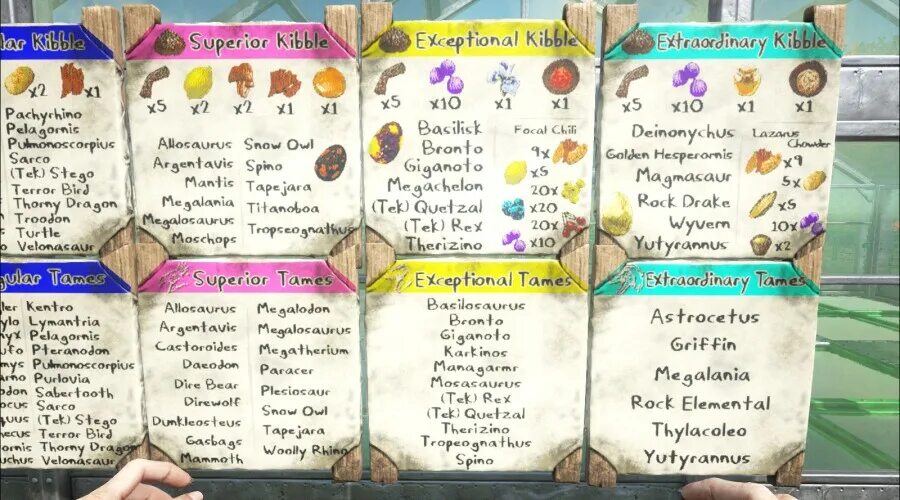 lar Kibble
x2 x1
Pachyrhino
Pelagornis
Pulmonoscorpius
Sarco
(Tek) Stego
Terror Bird
Thorny Dragon
Troodon
Turtle
Velonasaur
Superior Kibble
x5 x2 x2 x1 x1
Allosaurus
Argentavis
Mantis
Megalania
Megalosaurus
Moschops
Snow Owl
Spino
Tapejara
Titanoboa
Tropseognathus
Exceptional Kibble
x5 x10 x1 x1
Basilisk
Bronto
Giganoto
Megachelon
(Tek) Quetzal
(Tek) Rex
Therizino
Focal Chili
9x
x5
20x
x20
20x
x10
Extraordinary Kibble
x5 x10 x1 x1
Deinonychus
Golden Hesperornis
Magmasaur
Rock Drake
Wyvern
Yutyrannus
Lazarus
Chowder
x9
5x
x5
10x
x2
gular Tames
Kentro
Lymantria
Pelagornis
Pteranodon
Pulmonoscorpius
Purlovia
Sabertooth
Sarco
(Tek) Stego
Terror Bird
Thorny Dragon
Velonasaur
Superior Tames
Allosaurus
Argentavis
Castoroides
Daeodon
Dire Bear
Direwolf
Dunkleosteus
Gasbags
Mammoth
Megalodon
Megalosaurus
Megatherium
Paracer
Plesiosaur
Snow Owl
Tapejara
Woolly Rhino
Exceptional Tames
Basilosaurus
Bronto
Giganoto
Karkinos
Managarmr
Mosasaurus
(Tek) Rex
(Tek) Quetzal
Therizino
Tropeognathus
Spino
Extraordinary Tames
Astrocetus
Griffin
Megalania
Rock Elemental
Thylacoleo
Yutyrannus